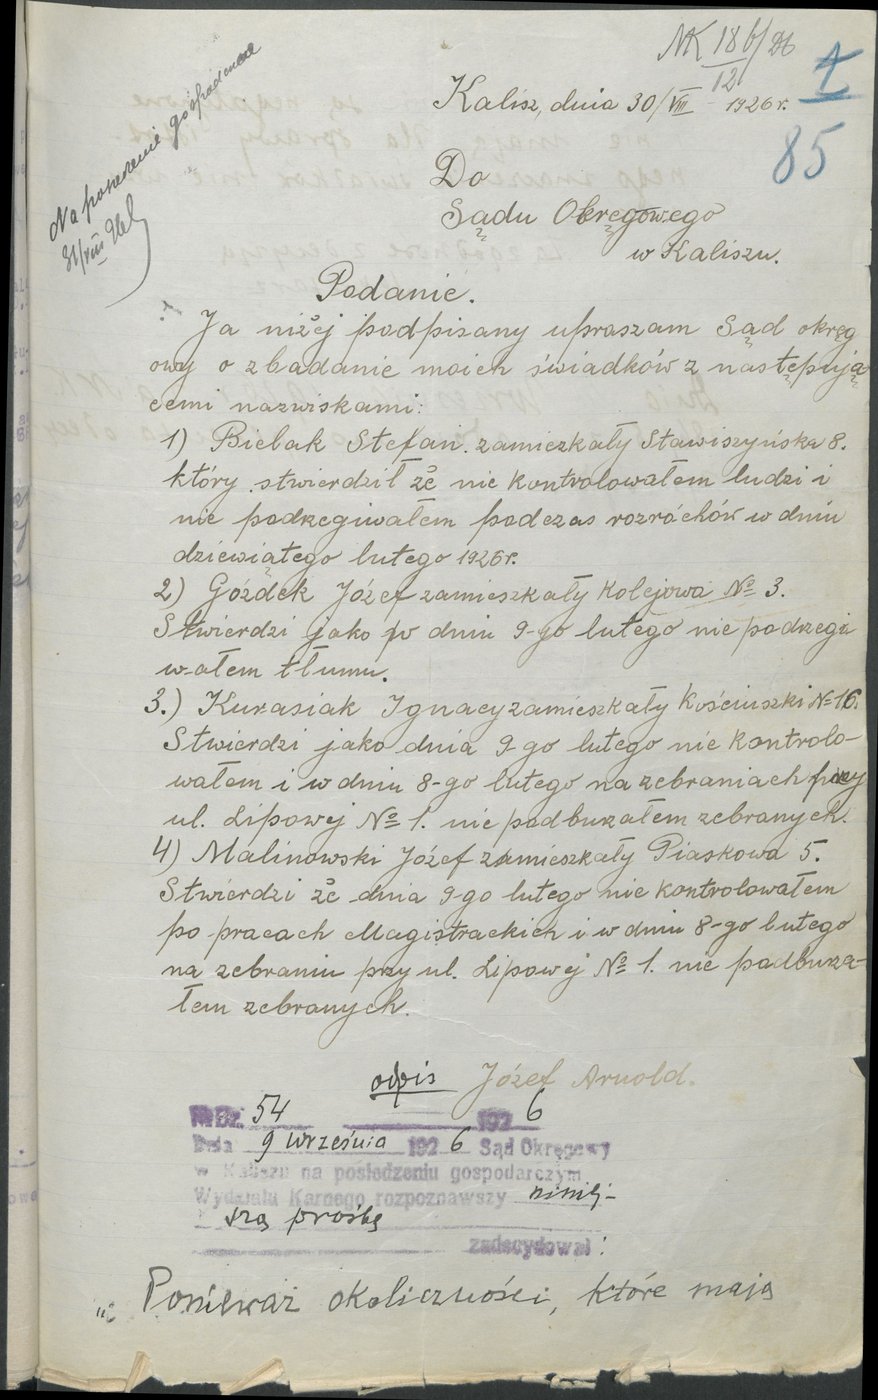 NK 18 b/26
12
1
Kalisz, dnia 30/VIII 1926 r.
85
Na posiedzenie gospodarcze
31/VIII 26
Do
Sądu Okręgowego
w Kaliszu.
Podanie.
Ja niżej podpisany upraszam Sąd okręg
owy o zbadanie moich świadków z następują
cemi nazwiskami:
1) Bielak Stefan. zamiezkały Stawiszyńska 8.
który stwierdził że nie kontrolowałem ludzi i
nie podrzegiwałem podczas rozróchów w dniu
dziewiątego lutego 1926 r.
2) Góździek Józef zamieszkały Kolejowa № 3.
Stwierdzi jako po dniu 9-go lutego nie podrzegi
wałem tłumu.
3.) Kurasiak Ignacy zamieszkały Kościuszki № 16.
Stwierdzi jako dnia 9-go lutego nie kontrolo-
wałem i w dniu 8-go lutego na zebraniach przy
ul. Lipowej № 1. nie podburzałem zebranych.
4) Malinowski Józef zamieszkały Piaskowa 5.
Stwierdzi że dnia 9-go lutego nie kontrolowałem
po pracach Magistrackich i w dniu 8-go lutego
na zebraniu przy ul. Lipowej № 1. nie podburza-
łem zebranych.
odpis Józef Arnold.
№ Dz. 54 192 6
Dnia 9 września 192 6 Sąd Okręgowy
w Kaliszu na posiedzeniu gospodarczym
Wydziału Karnego rozpoznawszy niniej-
szą prośbę
zadecydował:
"Ponieważ okoliczności, które mają